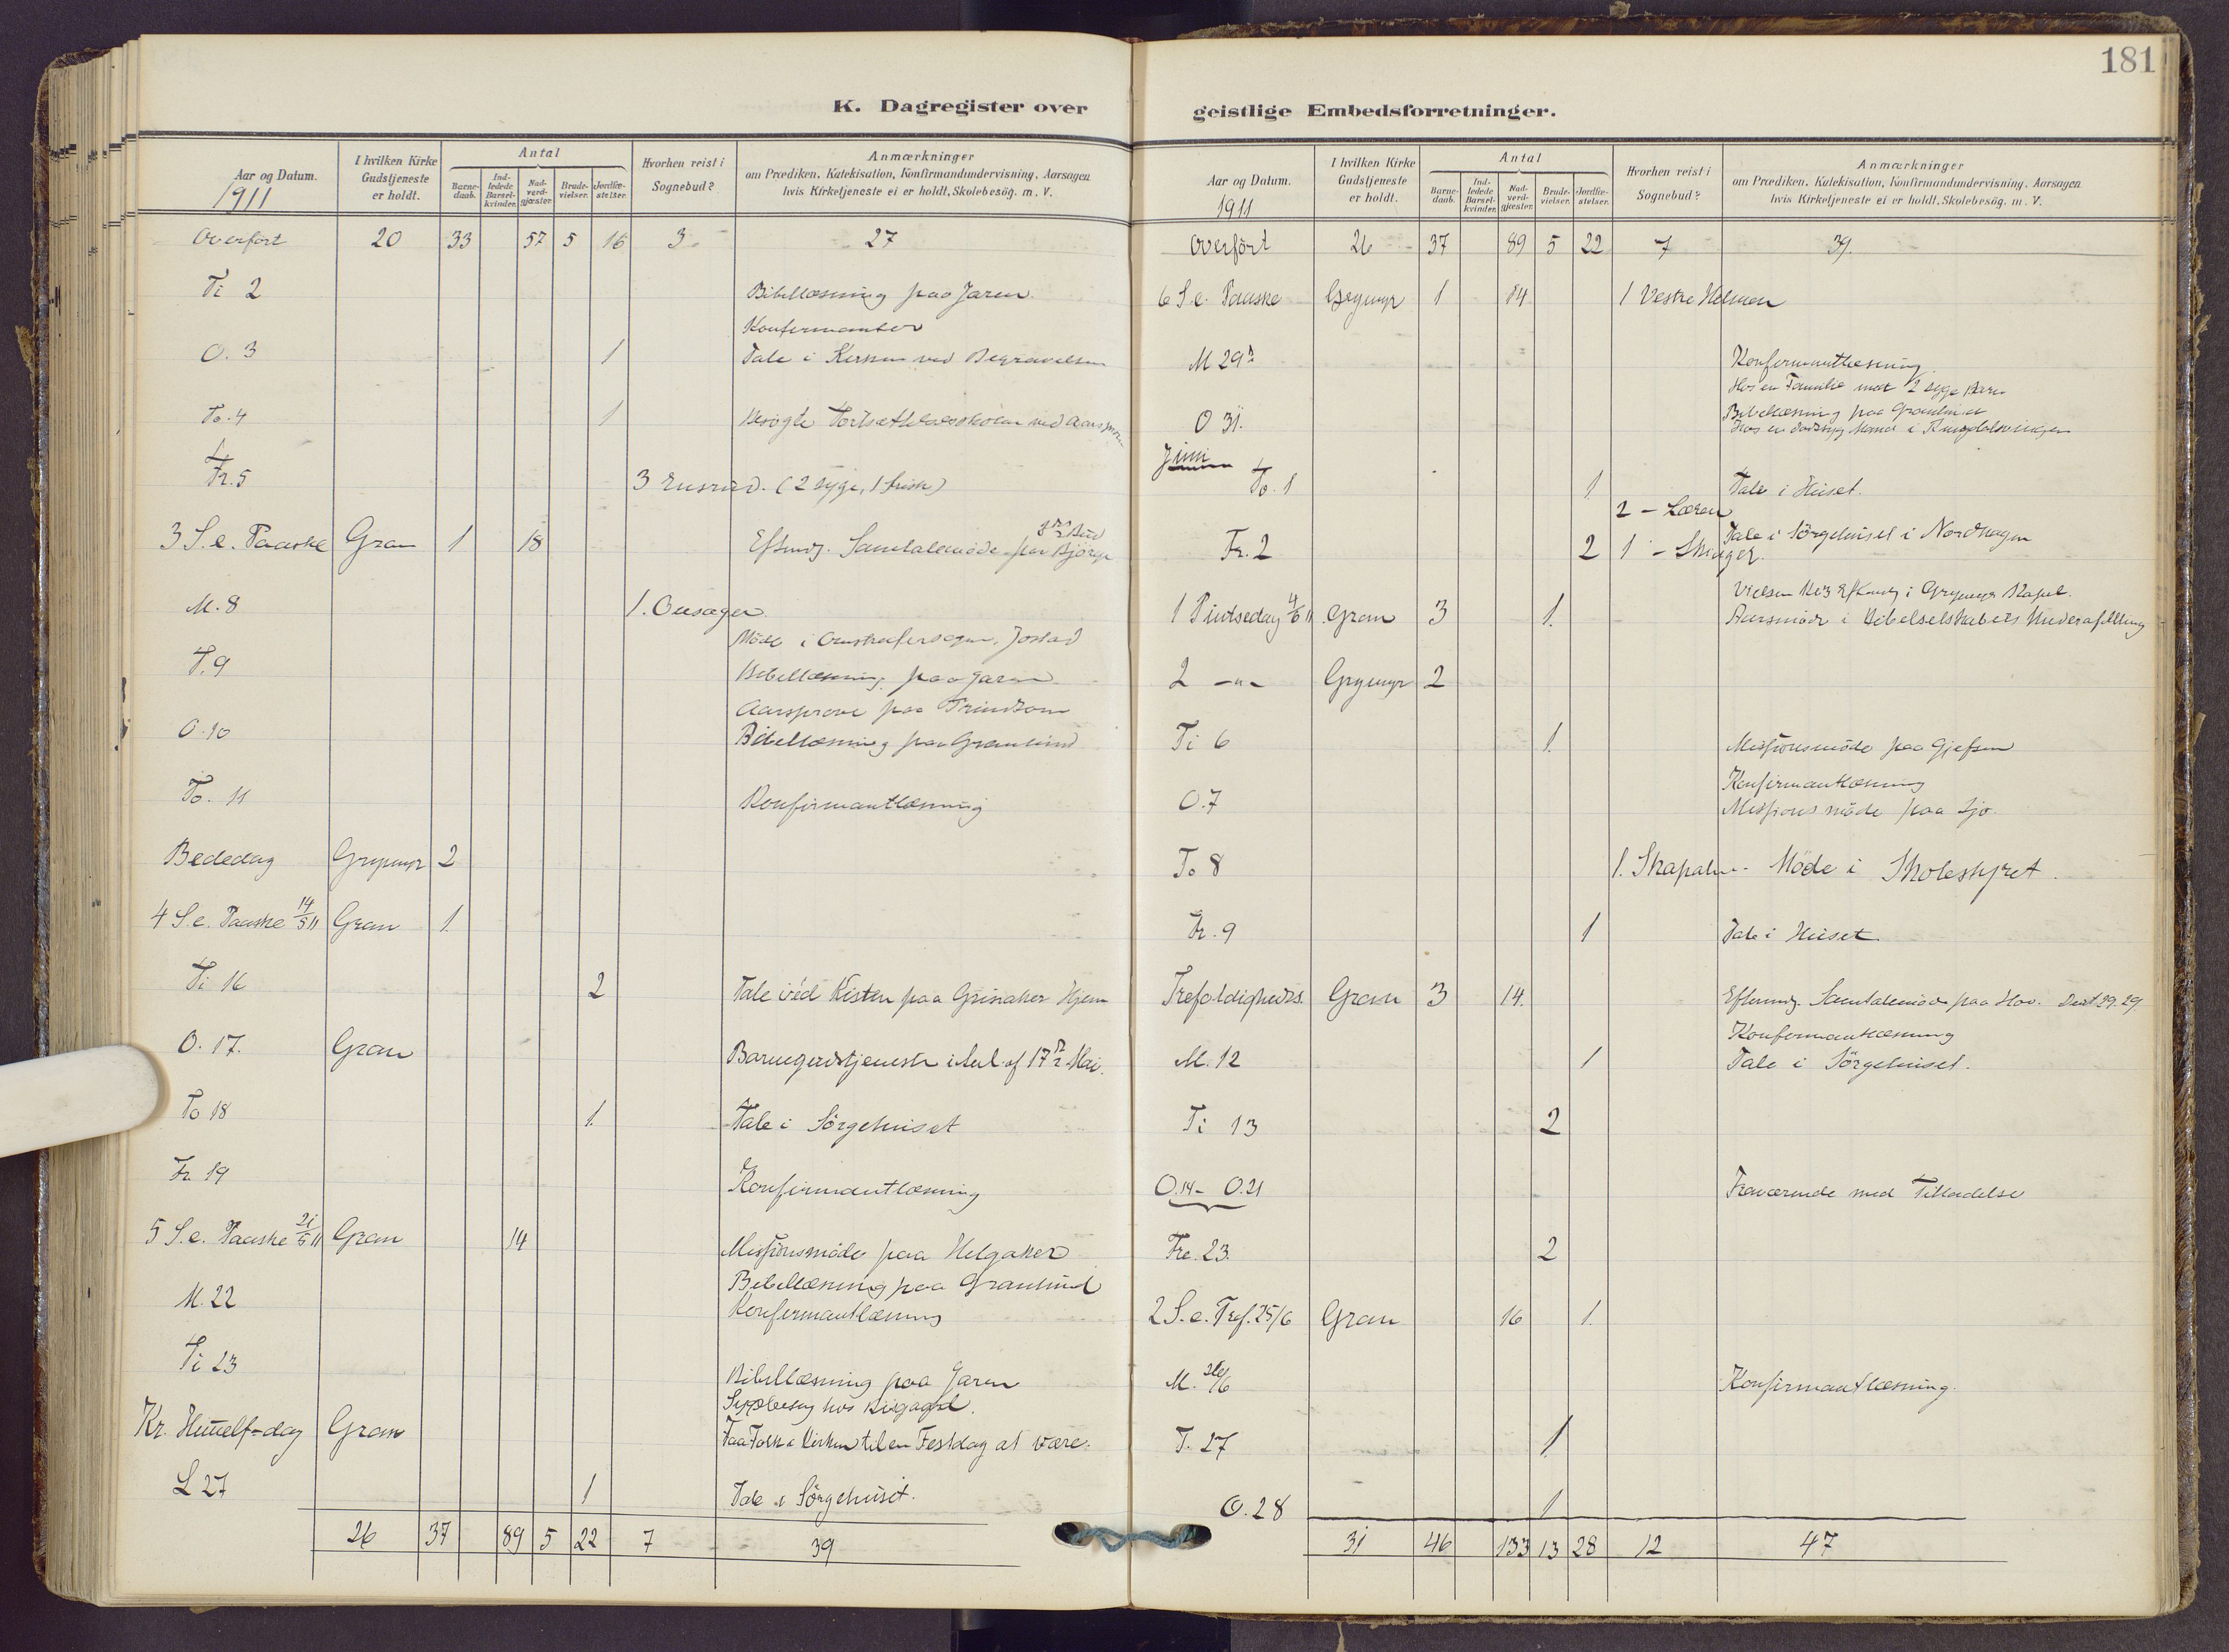 181
K. Dagregister over
geistlige Embedsforretninger.
Aar og Datum. 1911 | I hvilken Kirke Gudstjeneste er holdt. | Antal | Barnedaab. | Indledede Barselkvinder. | Nadverdgjæster. | Brudevielser. | Jordfæstelser. | Hvorhen reist i Sognebud? | Anmærkninger om Prædiken, Katekisation, Konfirmandundervisning, Aarsagen hvis Kirketjeneste ei er holdt, Skolebesøg. m. V.
Overført 20 33 57 5 16 3 27
Ti 2 Bibellæsning paa Jaren
Konfirmanter
O. 3 1 Tale i Kirken ved Begravelsen
To. 4 1 Besøgte
Fr. 5 3 (2 syge, 1 frisk)
3 S. e. Paaske Gran 1 18 Eftmdg. Samtalemøde paa
M. 8 1.
Møde i Jostad
T. 9 Bibellæsning paa Jaren
Aarsprøve paa
O. 10 Bibellæsning paa Granlund
To. 11 Konfirmantlæsning
Bededag Grymyr 2
4 S. e. Paaske 14/5 11 Gran 1
Ti 16 2 Tale ved Kisten paa Grinaker Hjem
O. 17. Gran Barnegudstjeneste i Anl. af 17de Mai.
To 18 1. Tale i Sörgehuset
Fr 19 Konfirmantlæsning
5 S. e. Paaske 21/5 11 Gran 14 Missionsmöde paa Helgaker
Bibellæsning paa Granlund
M. 22 Konfirmantlæsning
Ti 23 Bibellæsning paa Jaren
hos
Kr. Himmelf-dag Gran Faa Folk i Kirken til en Festdag at være.
L 27 1 Tale i Sörgehuset.
26 37 89 5 22 7 39
Aar og Datum. 1911 | I hvilken Kirke Gudstjeneste er holdt. | Antal | Barnedaab. | Indledede Barselkvinder. | Nadverdgjæster. | Brudevielser. | Jordfæstelser. | Hvorhen reist i Sognebud? | Anmærkninger om Prædiken, Katekisation, Konfirmandundervisning, Aarsagen hvis Kirketjeneste ei er holdt, Skolebesøg. m. V.
Overført 26 37 89 5 22 7 39.
6 S. e. Paaske Grymyr 1 14 1 Vestre
M 29de Konfirmantlæsning.
Hos en Familie med 2 syge Barn
O 31. Bibellæsning paa Granlund
Hos en Mand i
Juni
To. 1 1 Tale i Huset.
2 -
Fr. 2 2 1 - Tale i Sörgehuset i Nordhagen
Vielsen Kl 3 Eftmdg i Grymyr Kapel.
1 Pintsedag 4/6 11 Gran 3 1. Aarsmöde i Bibelselskabets Underafdeling
2 -"- Grymyr 2
Ti 6 1. Missionsmöde paa Gjefsen
Konfirmantlæsning
O. 7 Missionsmöde paa
To 8 1. Möde i Skolestyret.
Fr. 9 1 Tale i Huset
Trefoldigheds Gran 3 14. Eftmdg. Samtalemöde paa Hov. 29. 29
Konfirmantlæsning
M. 12 1 Tale i Sörgehuset.
Ti 13 2
O. 14 - O. 21 Fraværende med Tilladelse
Fre. 23. 2
2 S. e. Tref. 25/6 Gran 16 1.
M. 26/6 Konfirmantlæsning.
T. 27 1
O. 28 1
31 46 133 13 28 12 47